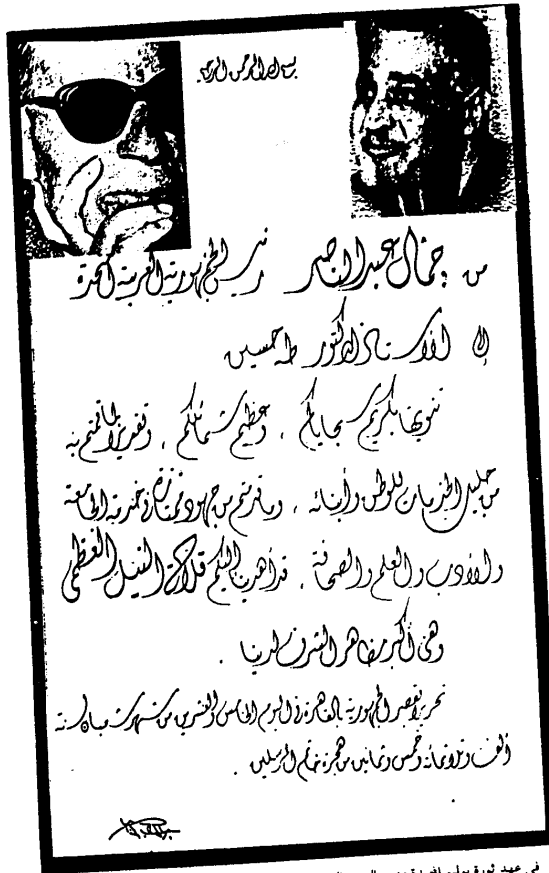 بسم الله الرحمن الرحيم
من جمال عبد الناصر رئيس الجمهورية العربية المتحدة
إلى الأستاذ الدكتور طه حسين
تنويها بكريم سجاياكم ، وعظيم شمائلكم ، وتقديرا لما قمتم به
من جليل الخدمات للوطن وأبنائه ، وما قدمتم من جهود ممتازة في خدمة الجامعة
والأدب والعلم والصحافة ، قد أهدينا إليكم قلادة النيل العظمى
وهى أكبر مظاهر الشرف لدينا .
تحريرا بقصر الجمهورية بالقاهرة فى اليوم الخامس والعشرين من شهر شعبان سنة
ألف وثلاثمائة وخمس وثمانين من هجرة خاتم المرسلين .
فى عهد ثورة يوليو